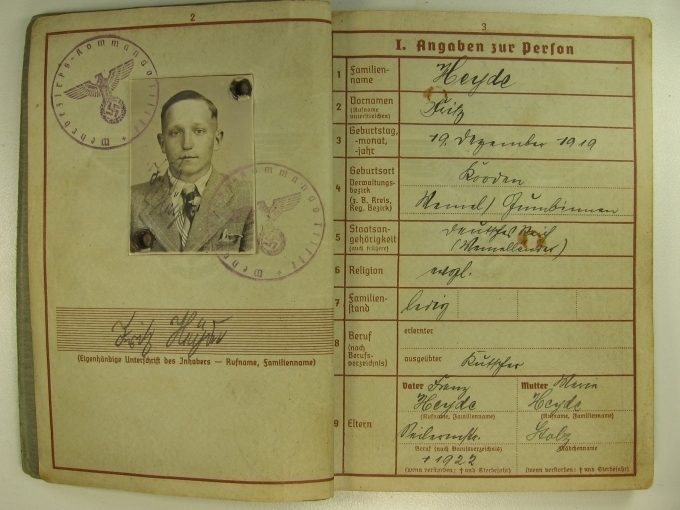 2
Wehrbezirks-Kommando
(Eigenhändige Unterschrift des Inhabers — Rufname, Familienname)
Fritz Heyde
3
I. Angaben zur Person
1 Familien-
name
Heyde
2 Vornamen
(Rufname
unterstreichen)
Fritz
3 Geburtstag,
-monat,
-jahr
19. Dezember 1919
4 Geburtsort
Verwaltungs-
bezirk
(z. B. Kreis,
Reg. Bezirk)
Memel/ Gumbinnen
5 Staatsan-
gehörigkeit
(auch frühere)
Deutsches Reich
(Memelländer)
6 Religion
evgl.
7 Familien-
stand
ledig
8 Beruf
(nach
Berufs-
verzeichnis)
erlernter
ausgeübter
Kutscher
9 Eltern
Vater Franz
Heyde
(Rufname, Familienname)
Beruf (nach Berufsverzeichnis)
† 1922
(wenn verstorben: † und Sterbejahr)
Mutter
Heyde
(Rufname, Familienname)
Stolz
Mädchenname
(wenn verstorben: † und Sterbejahr)